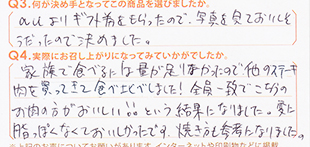 Q3.何が決め手となってこの商品を選びましたか。
のしよりギフト券をもらったので、写真を見ておいしそ
うだったので決めました。
Q4.実際にお召し上がりになってみていかがでしたか。
家族で食べるには量が足りなかったので他のステーキ
肉を買ってきて食べ比べしました!全員一致でこちらの
お肉の方がおいしい!!という結果になりました。変に
脂っぽくなくておいしかったです。焼き方も参考になりました。